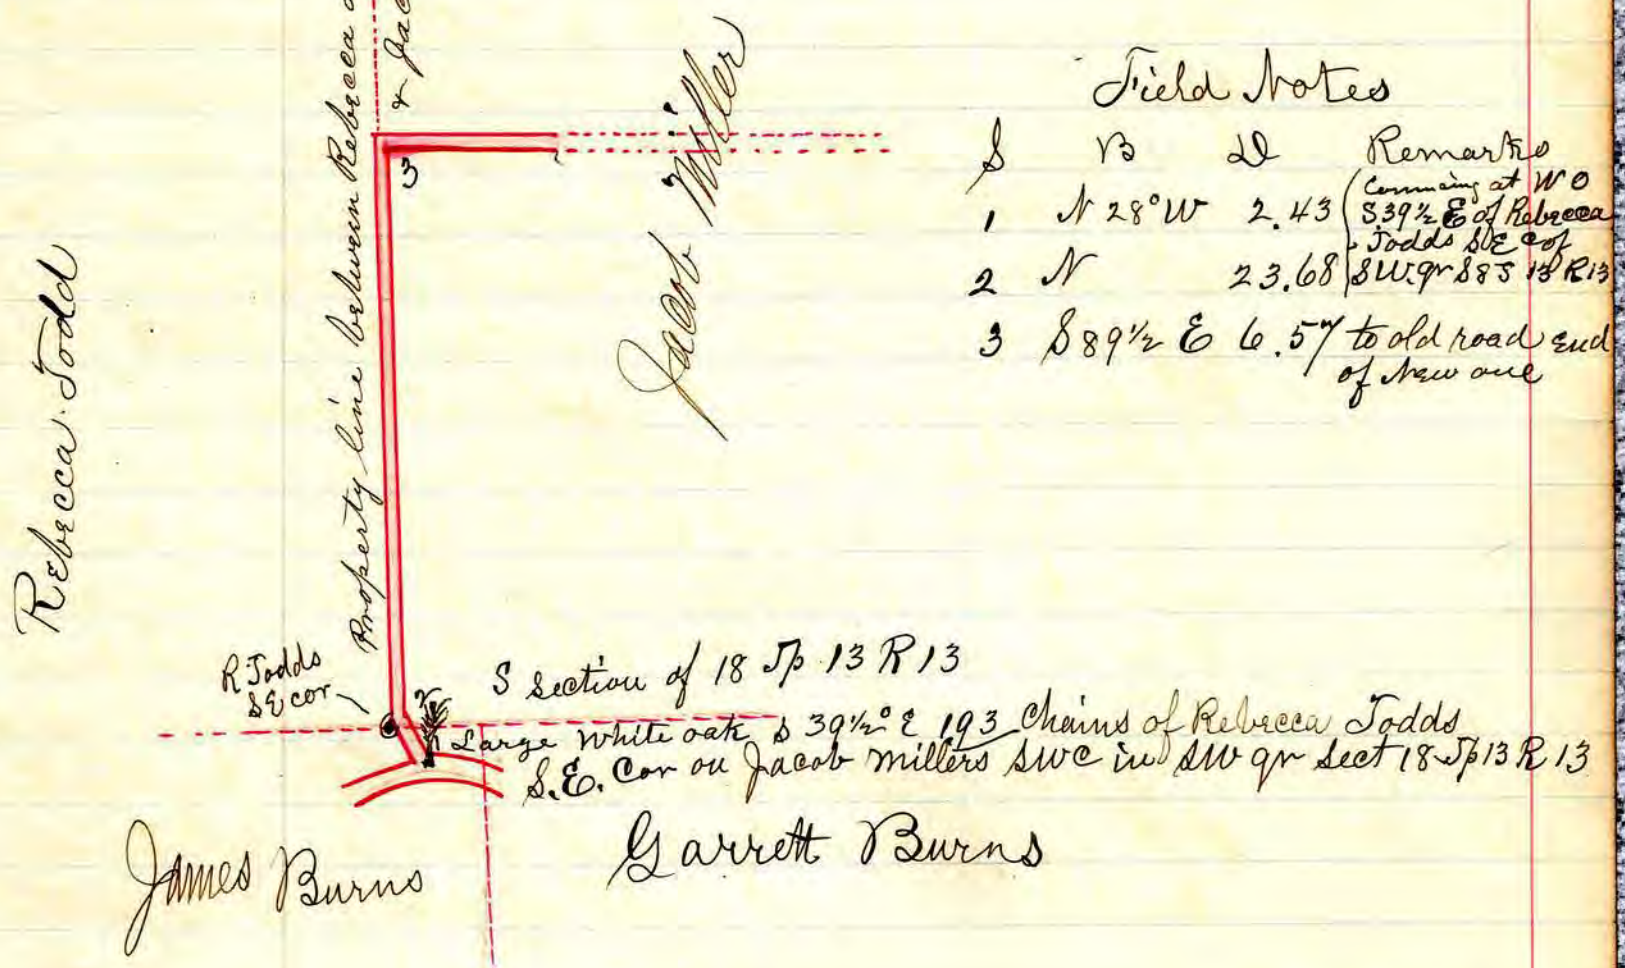 Property line between Rebecca
& Jac
Rebecca Todd
Jacob Miller
3
Field Notes
S B D Remarks
1 N 28° W 2.43
2 N 23.68
at W O
S 39½ E of Rebecca
Todds S E C of
SW. qr S 8 S 13 R 13
3 S 89½ E 6.57 to old road end
of New one
R Todds
SE cor
2
S section of 18 Tp 13 R 13
Large White oak S 39½° E 193 Chains of Rebecca Todds
S.E. Cor on Jacob Millers SWC in SW qr Sect 18 Tp 13 R 13
James Burns
Garrett Burns